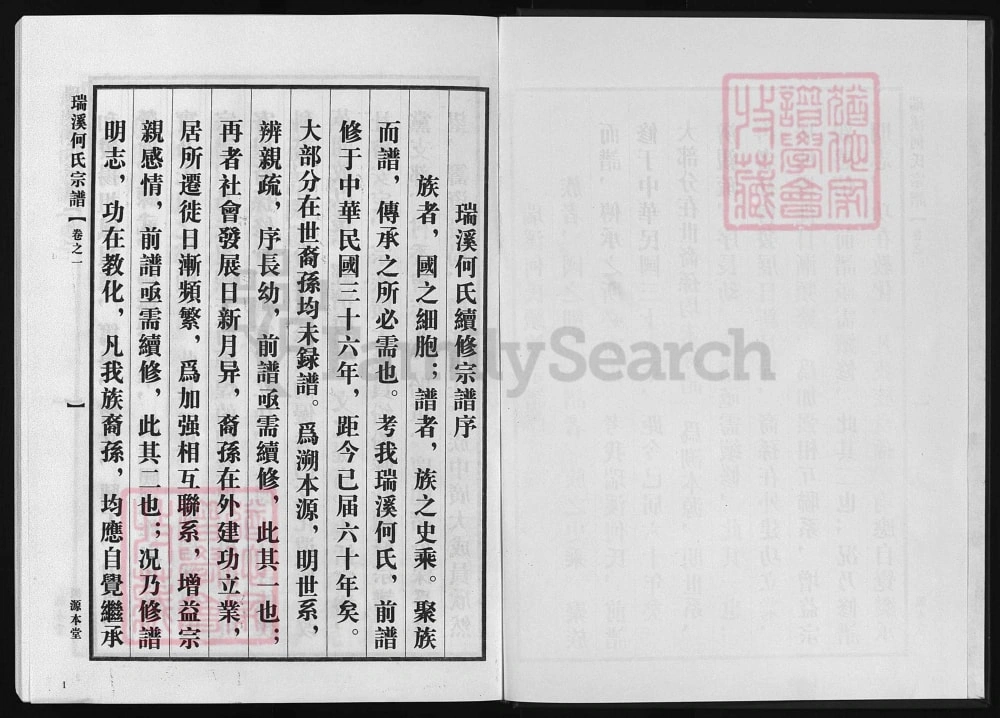 瑞溪何氏續修宗譜序
族者，國之細胞；譜者，族之史乘。聚族
而譜，傳承之所必需也。考我瑞溪何氏，前譜
修于中華民國三十六年，距今已届六十年矣。
大部分在世裔孫均未録譜。爲溯本源，明世系，
辨親疏，序長幼，前譜亟需續修，此其一也；
再者社會發展日新月异，裔孫在外建功立業，
居所遷徙日漸頻繁，爲加强相互聯系，增益宗
親感情，前譜亟需續修，此其二也；况乃修譜
明志，功在教化，凡我族裔孫，均應自覺繼承
瑞溪何氏宗譜【卷之一】
源本堂
1
FamilySearch